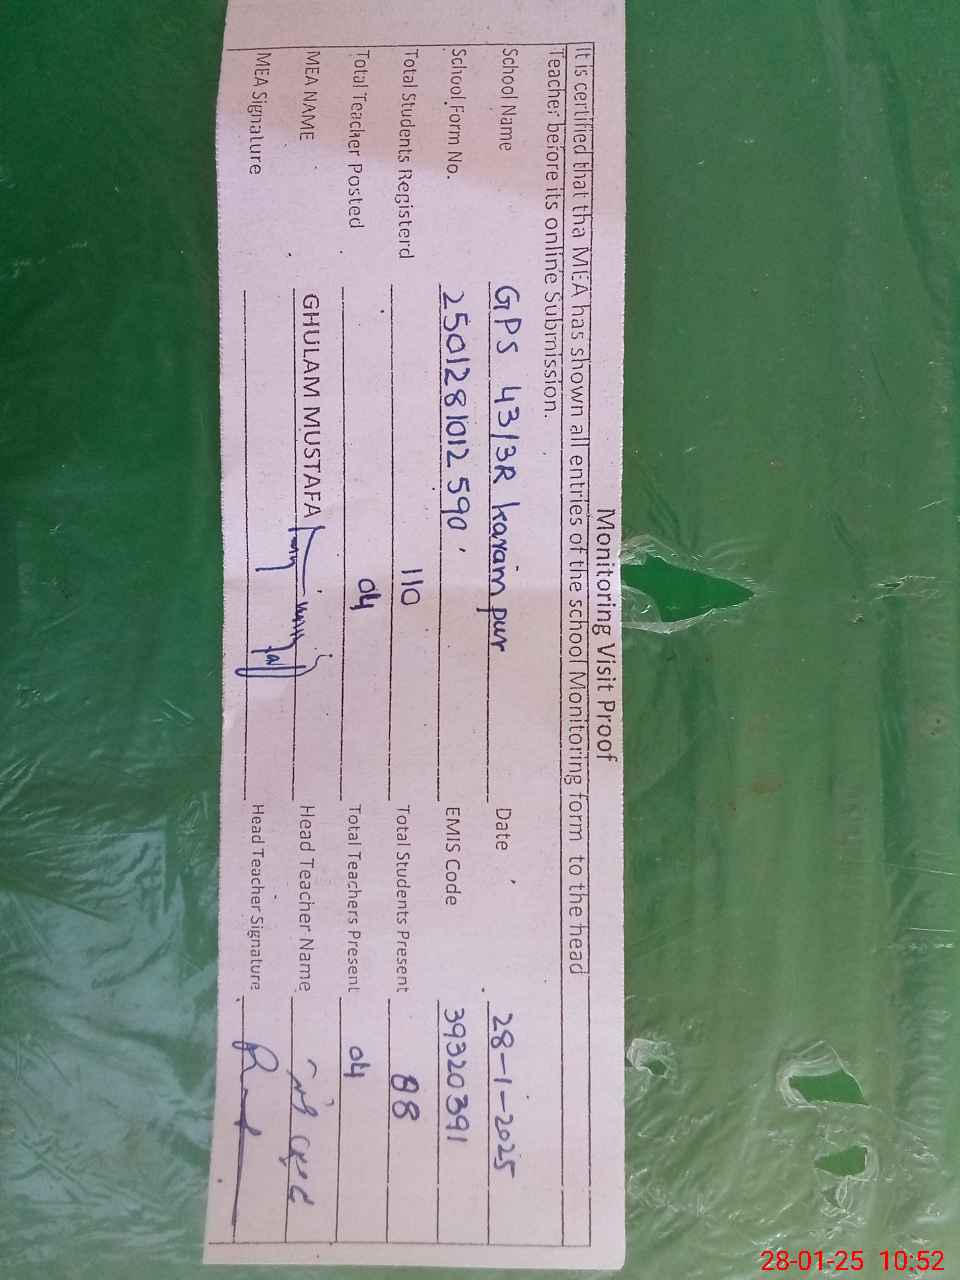 Monitoring Visit Proof
It is certified that tha MEA has shown all entries of the school Monitoring form to the head
Teacher before its online Submission.
School Name GPS 43/3R karam pur Date 28-1-2025
School Form No. 2501281012590 EMIS Code 39320391
Total Students Registerd 110 Total Students Present 88
Total Teacher Posted 04 Total Teachers Present 04
MEA NAME GHULAM MUSTAFA Head Teacher Name
MEA Signature Head Teacher Signature
28-01-25 10:52